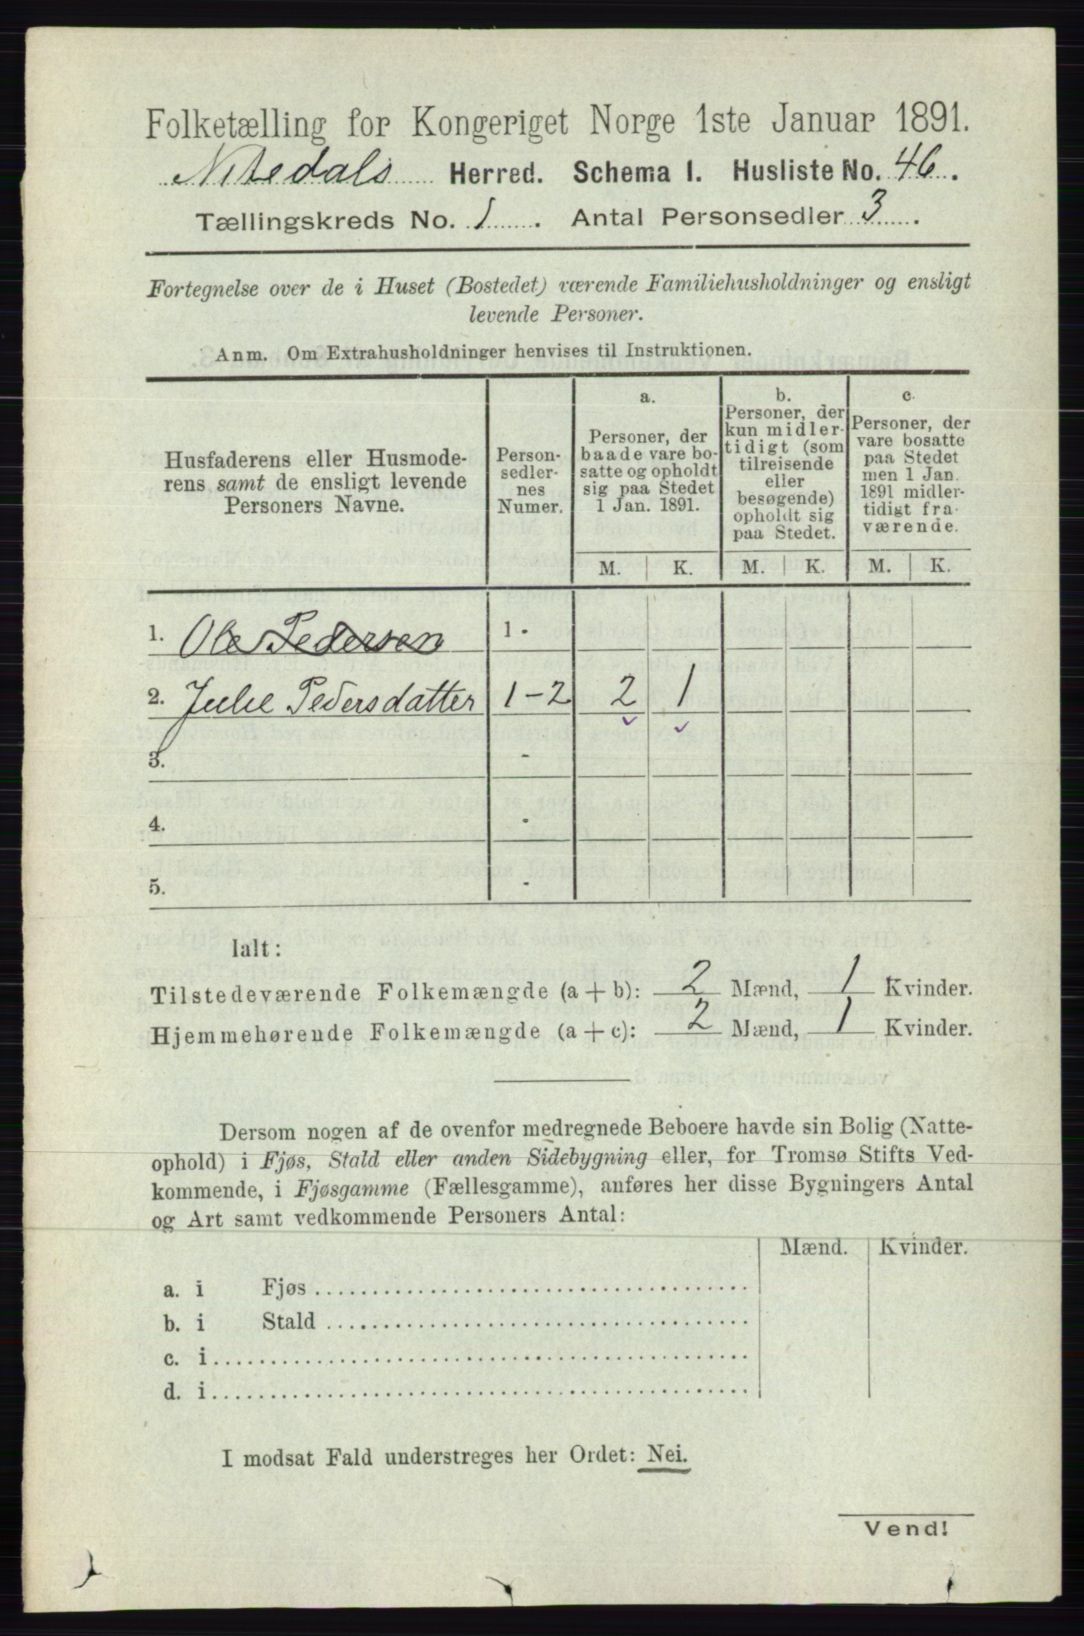 Folketælling for Kongeriget Norge 1ste Januar 1891.
Nitedals Herred. Schema I. Husliste No. 46.
Tællingskreds No. 1. Antal Personsedler 3.
Fortegnelse over de i Huset (Bostedet) værende Familiehusholdninger og ensligt
levende Personer.
Anm. Om Extrahusholdninger henvises til Instruktionen.
Husfaderens eller Husmode-
rens samt de ensligt levende
Personers Navne.
Person-
sedler-
nes
Numer.
a.
Personer, der
baade vare bo-
satte og opholdt
sig paa Stedet
1 Jan. 1891.
b.
Personer, der
kun midler-
tidigt (som
tilreisende
eller
besøgende)
opholdt sig
paa Stedet.
c.
Personer, der
vare bosatte
paa Stedet
men 1 Jan.
1891 midler-
tidigt fra-
værende.
M. K. M. K. M. K.
1. Ole Pedersen 1 -
2. Julie Pedersdatter 1-2 2 1
3. -
4. -
5. -
Ialt:
Tilstedeværende Folkemængde (a + b): 2 Mænd, 1 Kvinder.
Hjemmehørende Folkemængde (a + c): 2 Mænd, 1 Kvinder.
Dersom nogen af de ovenfor medregnede Beboere havde sin Bolig (Natte-
ophold) i Fjøs, Stald eller anden Sidebygning eller, for Tromsø Stifts Ved-
kommende, i Fjøsgamme (Fællesgamme), anføres her disse Bygningers Antal
og Art samt vedkommende Personers Antal:
Mænd. Kvinder.
a. i Fjøs
b. i Stald
c. i
d. i
I modsat Fald understreges her Ordet: Nei.
Vend!